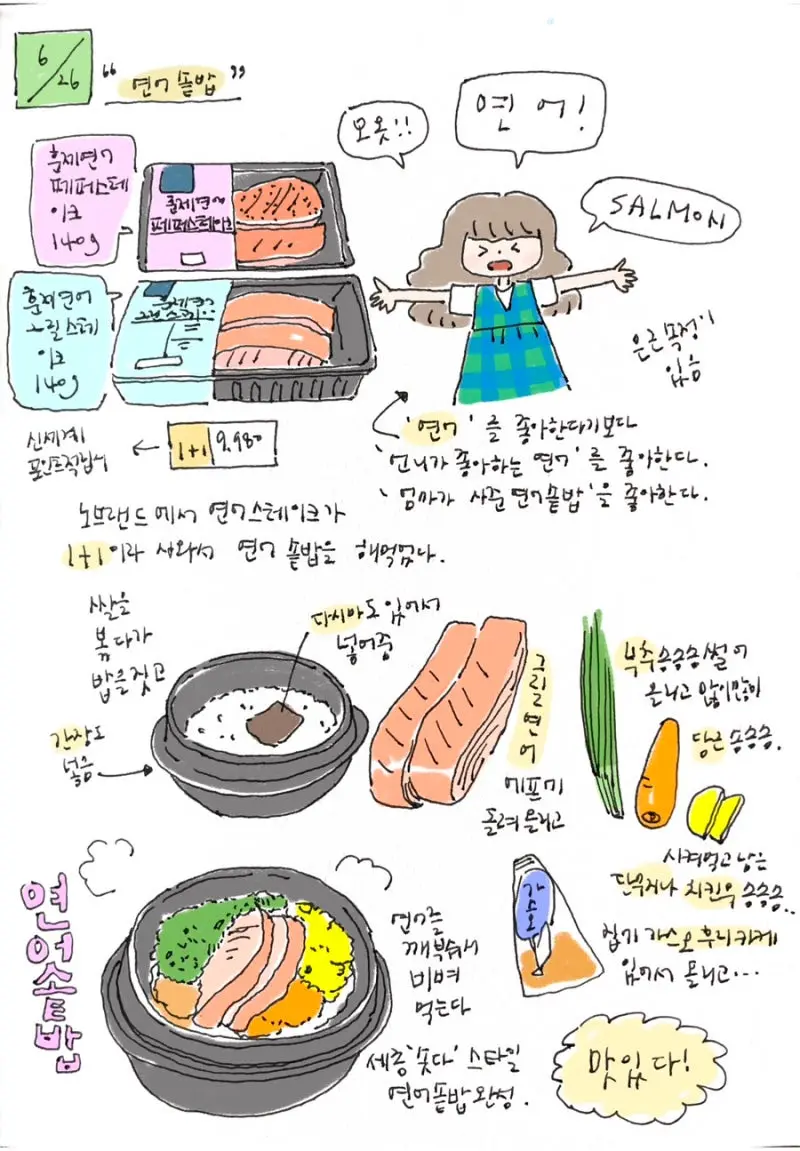 6/26
“연어 솥밥”
훈제연어
페퍼스테
이크
140g
훈제연어
페퍼스테이크
훈제연어
그릴스테
이크
140g
훈제연어
오옷!!
연어!
SALMON
은근 목청
있음
신세계
포인트적립시
← 1+1 9,980
'연어'를 좋아한다기보다
'언니가 좋아하는 연어'를 좋아한다.
'엄마가 사준 연어솥밥'을 좋아한다.
노브랜드에서 연어스테이크가
1+1이라 사와서 연어 솥밥을 해먹었다.
쌀을
볶다가
밥을 짓고
다시마도 있어서
넣어줌
간장도
넣음
그릴연어
에프에
돌려 올리고
부추 송송송 썰어
올리고 많이많이
당근 송송송.
시켜먹고 남은
단무지나 치킨무 송송송..
가쓰오
집에 가스오 후리카케
있어서 올리고...
연어솥밥
연어를
깨부숴서
비벼
먹는다
세종 '솟다' 스타일
연어솥밥 완성.
맛있다!